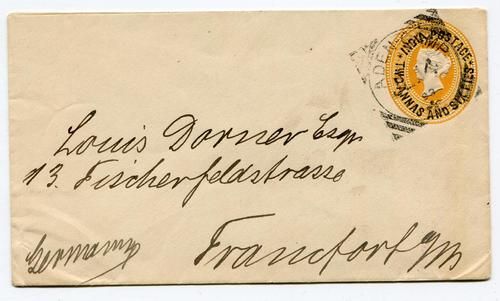 INDIA POSTAGE
TWO ANNAS AND SIX PIES
ADEN
Louis Dorner Esqr
13. Fischerfeldstrasse
Francfort a/m
Germany